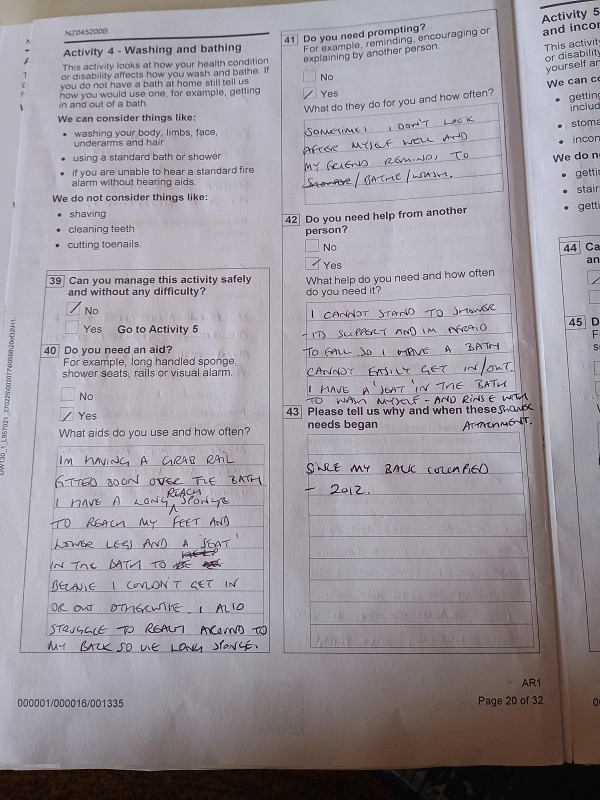 NZ045200B
Activity 4 - Washing and bathing
This activity looks at how your health condition
or disability affects how you wash and bathe. If
you do not have a bath at home still tell us
how you would use one, for example, getting
in and out of a bath.
We can consider things like:
• washing your body, limbs, face,
underarms and hair
• using a standard bath or shower
• if you are unable to hear a standard fire
alarm without hearing aids.
We do not consider things like:
• shaving
• cleaning teeth
• cutting toenails.
39 Can you manage this activity safely
and without any difficulty?
No
Yes Go to Activity 5
40 Do you need an aid?
For example, long handled sponge,
shower seats, rails or visual alarm.
No
Yes
What aids do you use and how often?
IM HAVING A GRAB RAIL
FITTED SOON OVER THE BATH.
I HAVE A LONG REACH SPONGE
TO REACH MY FEET AND
LOWER LEGS AND A 'SEAT'
IN THE BATH TO
BECAUSE I COULDN'T GET IN
OR OUT OTHERWISE. I ALSO
STRUGGLE TO REACH AROUND TO
MY BACK SO USE LONG SPONGE.
41 Do you need prompting?
For example, reminding, encouraging or
explaining by another person.
No
Yes
What do they do for you and how often?
SOMETIMES I DON'T LOOK
AFTER MYSELF WELL AND
MY FRIEND REMINDS TO
/ BATHE / WASH.
42 Do you need help from another
person?
No
Yes
What help do you need and how often
do you need it?
I CANNOT STAND TO SHOWER
- ITS SLIPPERY AND IM AFRAID
TO FALL SO I HAVE A BATH
CANNOT EASILY GET IN/OUT
I HAVE A 'SEAT' IN THE BATH
TO WASH MYSELF - AND RINSE WITH
SHOWER
ATTACHMENT.
43 Please tell us why and when these
needs began
SINCE MY BACK COLLAPSED
- 2012.
AR1
000001/000016/001335
Page 20 of 32
Activity 5
and incon
This activity
or disability
yourself an
We can co
• getting
includ
• stoma
• incon
We do n
• getti
• stair
• getti
44 Ca
an
45 D